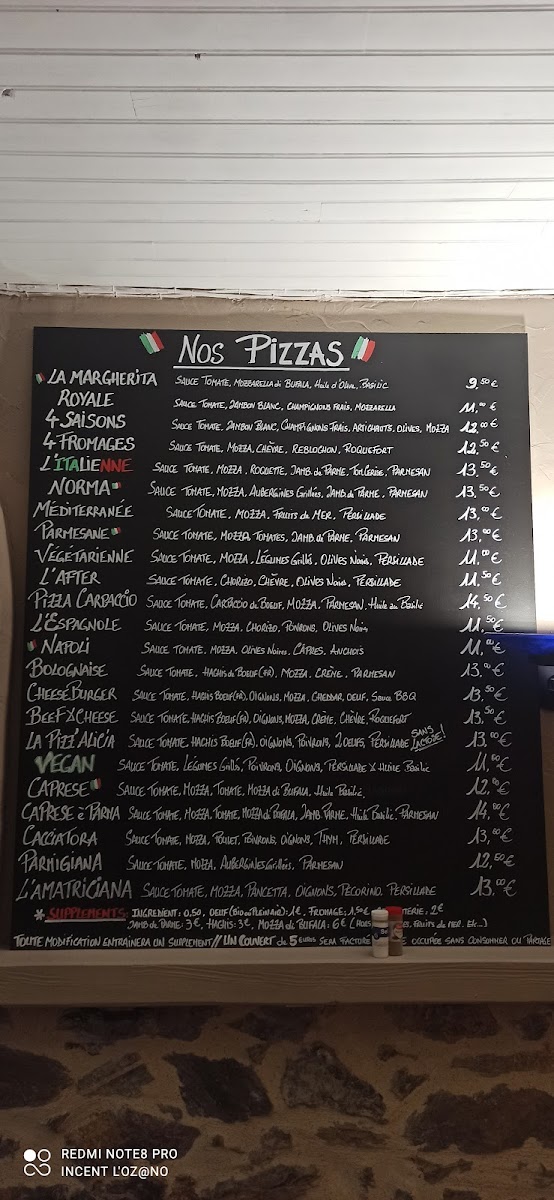 Nos Pizzas
LA MARGHERITA SAUCE TOMATE, MOZZARELLA di BUFALA, Huile d'Olive, BASILIC 9,50€
ROYALE SAUCE TOMATE, JAMBON BLANC, CHAMPIGNONS FRAIS, MOZZARELLA 11,00€
4 SAISONS SAUCE TOMATE, JAMBON BLANC, CHAMPIGNONS FRAIS, ARTICHAUTS, OLIVES, MOZZA 12,00€
4 FROMAGES SAUCE TOMATE, MOZZA, CHÈVRE, REBLOCHON, ROQUEFORT 12,50€
L'ITALIENNE SAUCE TOMATE, MOZZA, ROQUETTE, JAMB. de PARME, TOM.CERISE, PARMESAN 13,50€
NORMA SAUCE TOMATE, MOZZA, AUBERGINES Grillées, JAMB. de PARME, PARMESAN 13,50€
MÉDITERRANÉE SAUCE TOMATE, MOZZA, FRUITS de MER, PERSILLADE 13,00€
PARMESANE SAUCE TOMATE, MOZZA, TOMATES, JAMB. de PARME, PARMESAN 13,00€
VÉGÉTARIENNE SAUCE TOMATE, MOZZA, LÉGUMES Grillés, OLIVES Noires, PERSILLADE 11,00€
L'AFTER SAUCE TOMATE, CHORIZO, CHÈVRE, OLIVES Noires, PERSILLADE 11,50€
PIZZA CARPACCIO SAUCE TOMATE, CARPACCIO de BOEUF, MOZZA, PARMESAN, Huile au Basilic 14,50€
L'ESPAGNOLE SAUCE TOMATE, MOZZA, CHORIZO, POIVRONS, OLIVES Noires 11,50€
NAPOLI SAUCE TOMATE, MOZZA, OLIVES Noires, CÂPRES, ANCHOIS 11,00€
BOLOGNAISE SAUCE TOMATE, HACHIS de BOEUF (FR), MOZZA, CRÈME, PARMESAN 13,00€
CHEESEBURGER SAUCE TOMATE, HACHIS BOEUF (FR), OIGNONS, MOZZA, CHEDDAR, OEUF, Sauce BBQ 13,50€
BEEF X CHEESE SAUCE TOMATE, HACHIS BOEUF (FR), OIGNONS, MOZZA, CRÈME, CHÈVRE, ROQUEFORT 13,50€
LA PIZZ'ALICIA SAUCE TOMATE, HACHIS BOEUF (FR), OIGNONS, POIVRONS, 2 OEUFS, PERSILLADE SANS LACTOSE! 13,00€
VEGAN SAUCE TOMATE, LÉGUMES Grillés, POIVRONS, OIGNONS, PERSILLADE X HUILE Basilic 11,50€
CAPRESE SAUCE TOMATE, MOZZA, TOMATE, MOZZA di BUFALA, Huile Basilic 12,00€
CAPRESE è PARMA SAUCE TOMATE, MOZZA, TOMATE, MOZZA di BUFALA, JAMB. PARME, Huile Basilic, PARMESAN 14,00€
CACCIATORA SAUCE TOMATE, MOZZA, POULET, POIVRONS, OIGNONS, THYM, PERSILLADE 13,00€
PARMIGIANA SAUCE TOMATE, MOZZA, AUBERGINES Grillées, PARMESAN 12,50€
L'AMATRICIANA SAUCE TOMATE, MOZZA, PANCETTA, OIGNONS, PECORINO, PERSILLADE 13,00€
* SUPPLEMENTS: INGREDIENT: 0,50, OEUF (Bio ou Plein air): 1€, FROMAGE: 1,50€ TERIE: 2€
JAMB de PARME: 3€, HACHIS: 3€, MOZZA di BUFALA: 6€ (HORS FRUITS de MER, Etc...)
TOUTE MODIFICATION ENTRAINERA UN SUPPLEMENT // UN COUVERT de 5 EUROS SERA FACTURÉ OCCUPÉE SANS CONSOMMER OU PARTAGE
REDMI NOTE8 PRO
INCENT L'OZ@NO